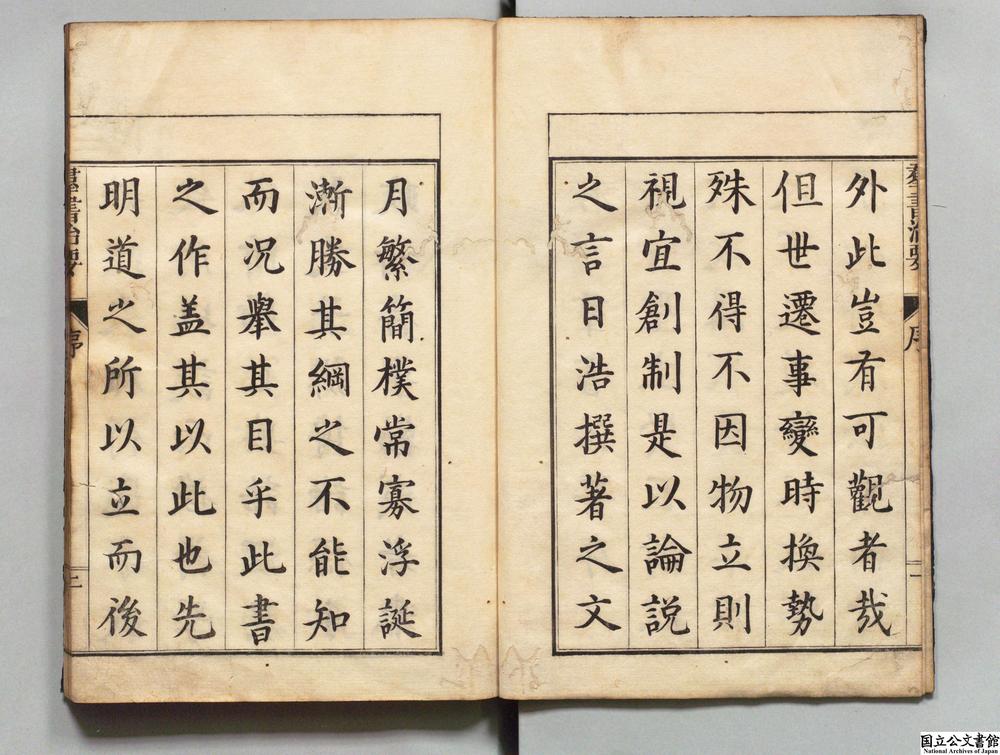 羣書治要
序
一
外此豈有可觀者哉
但世遷事變時換勢
殊不得不因物立則
視宜創制是以論説
之言日浩撰著之文
月繁簡樸常寡浮誕
漸勝其綱之不能知
而况舉其目乎此書
之作盖其以此也先
明道之所以立而後
羣書治要
序
二
国立公文書館
National Archives of Japan